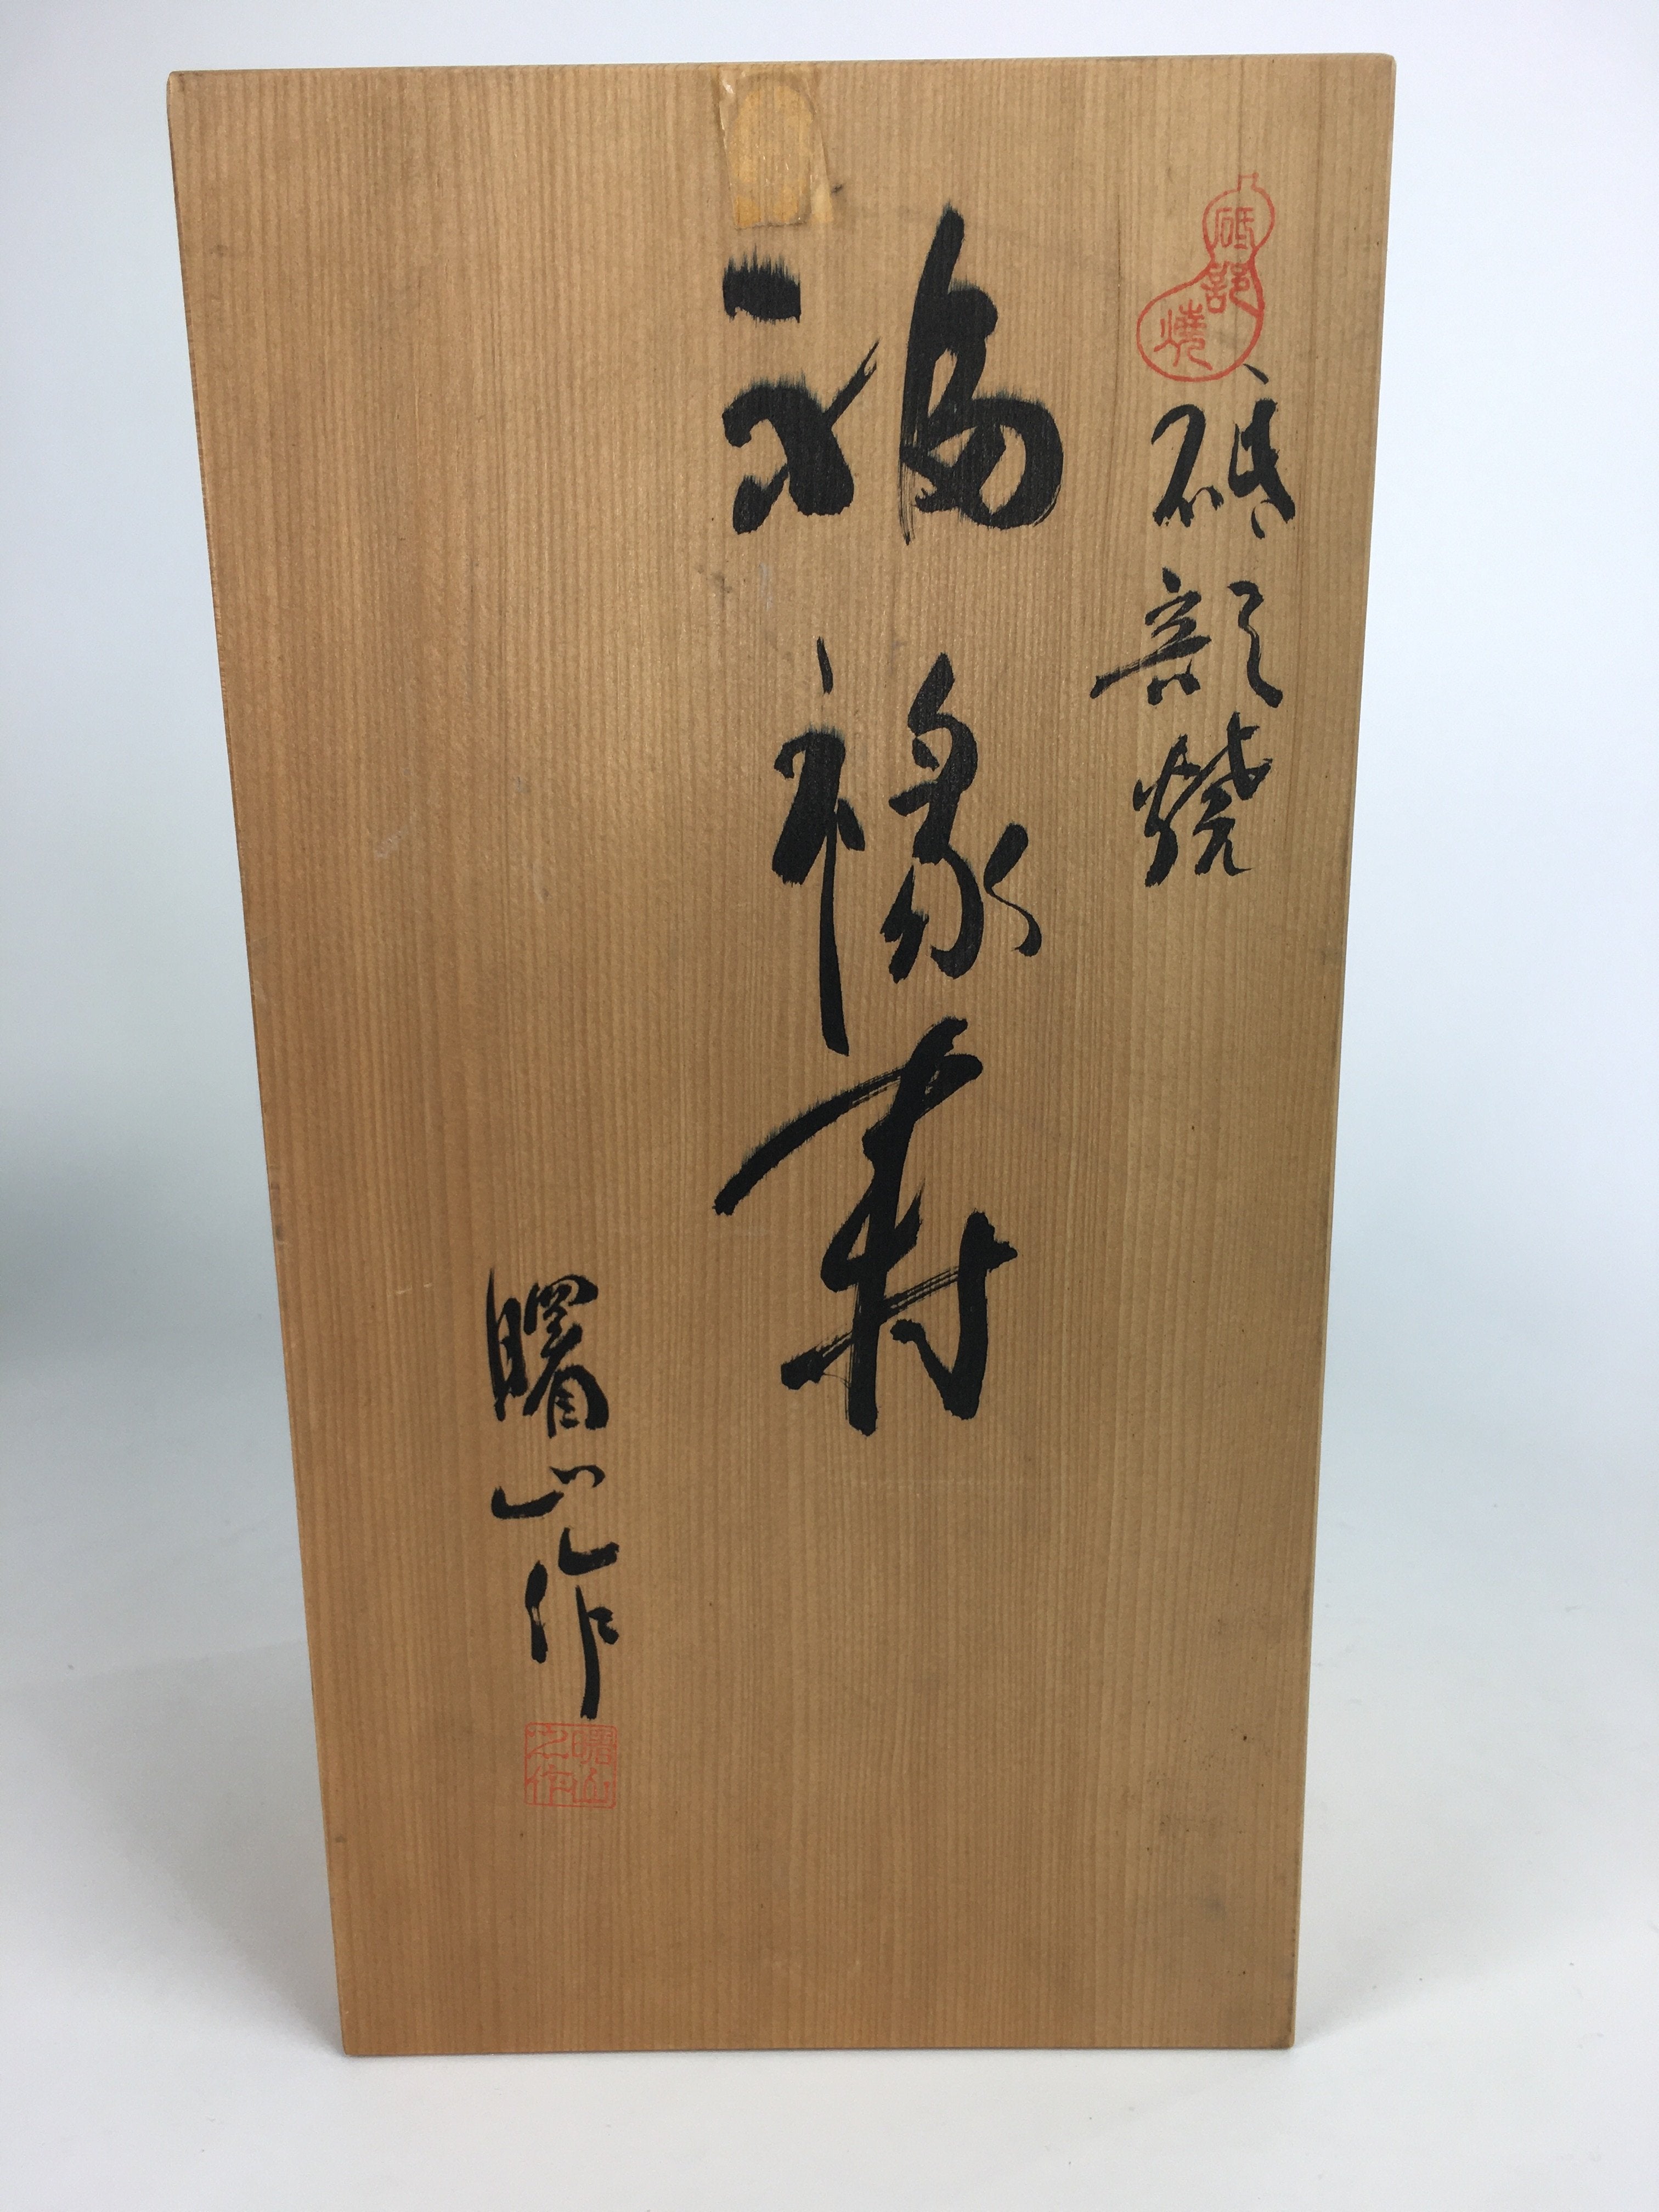 砥部焼
砥部焼
福禄寿
曙山作
曙山之作